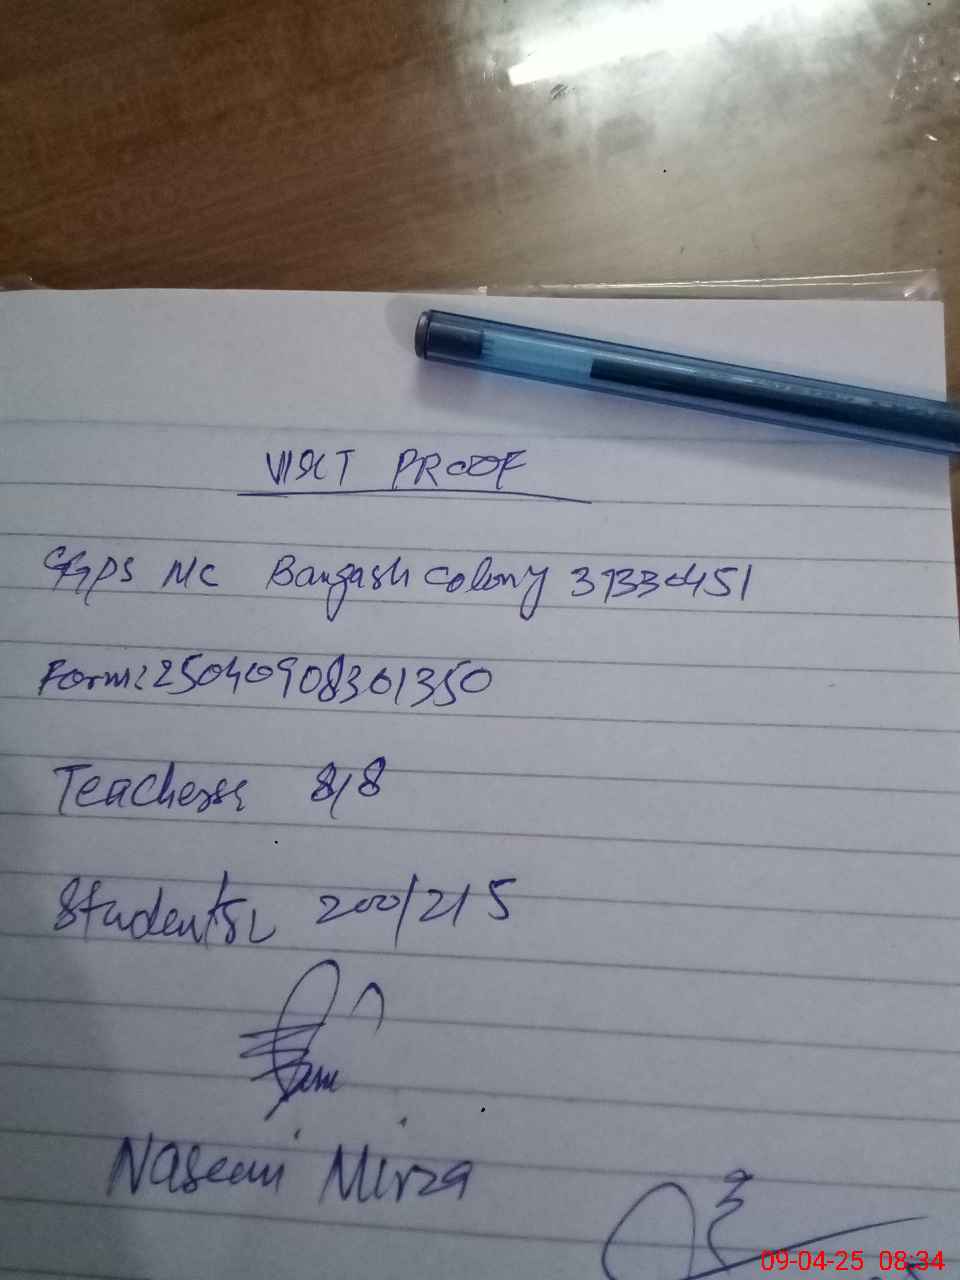 VISIT PROOF
GGPS MC Bangash Colony 37330451
Form: 25040908301350
Teachers: 8/8
Students: 200/215
Naseem Mirza
09-04-25 08:34